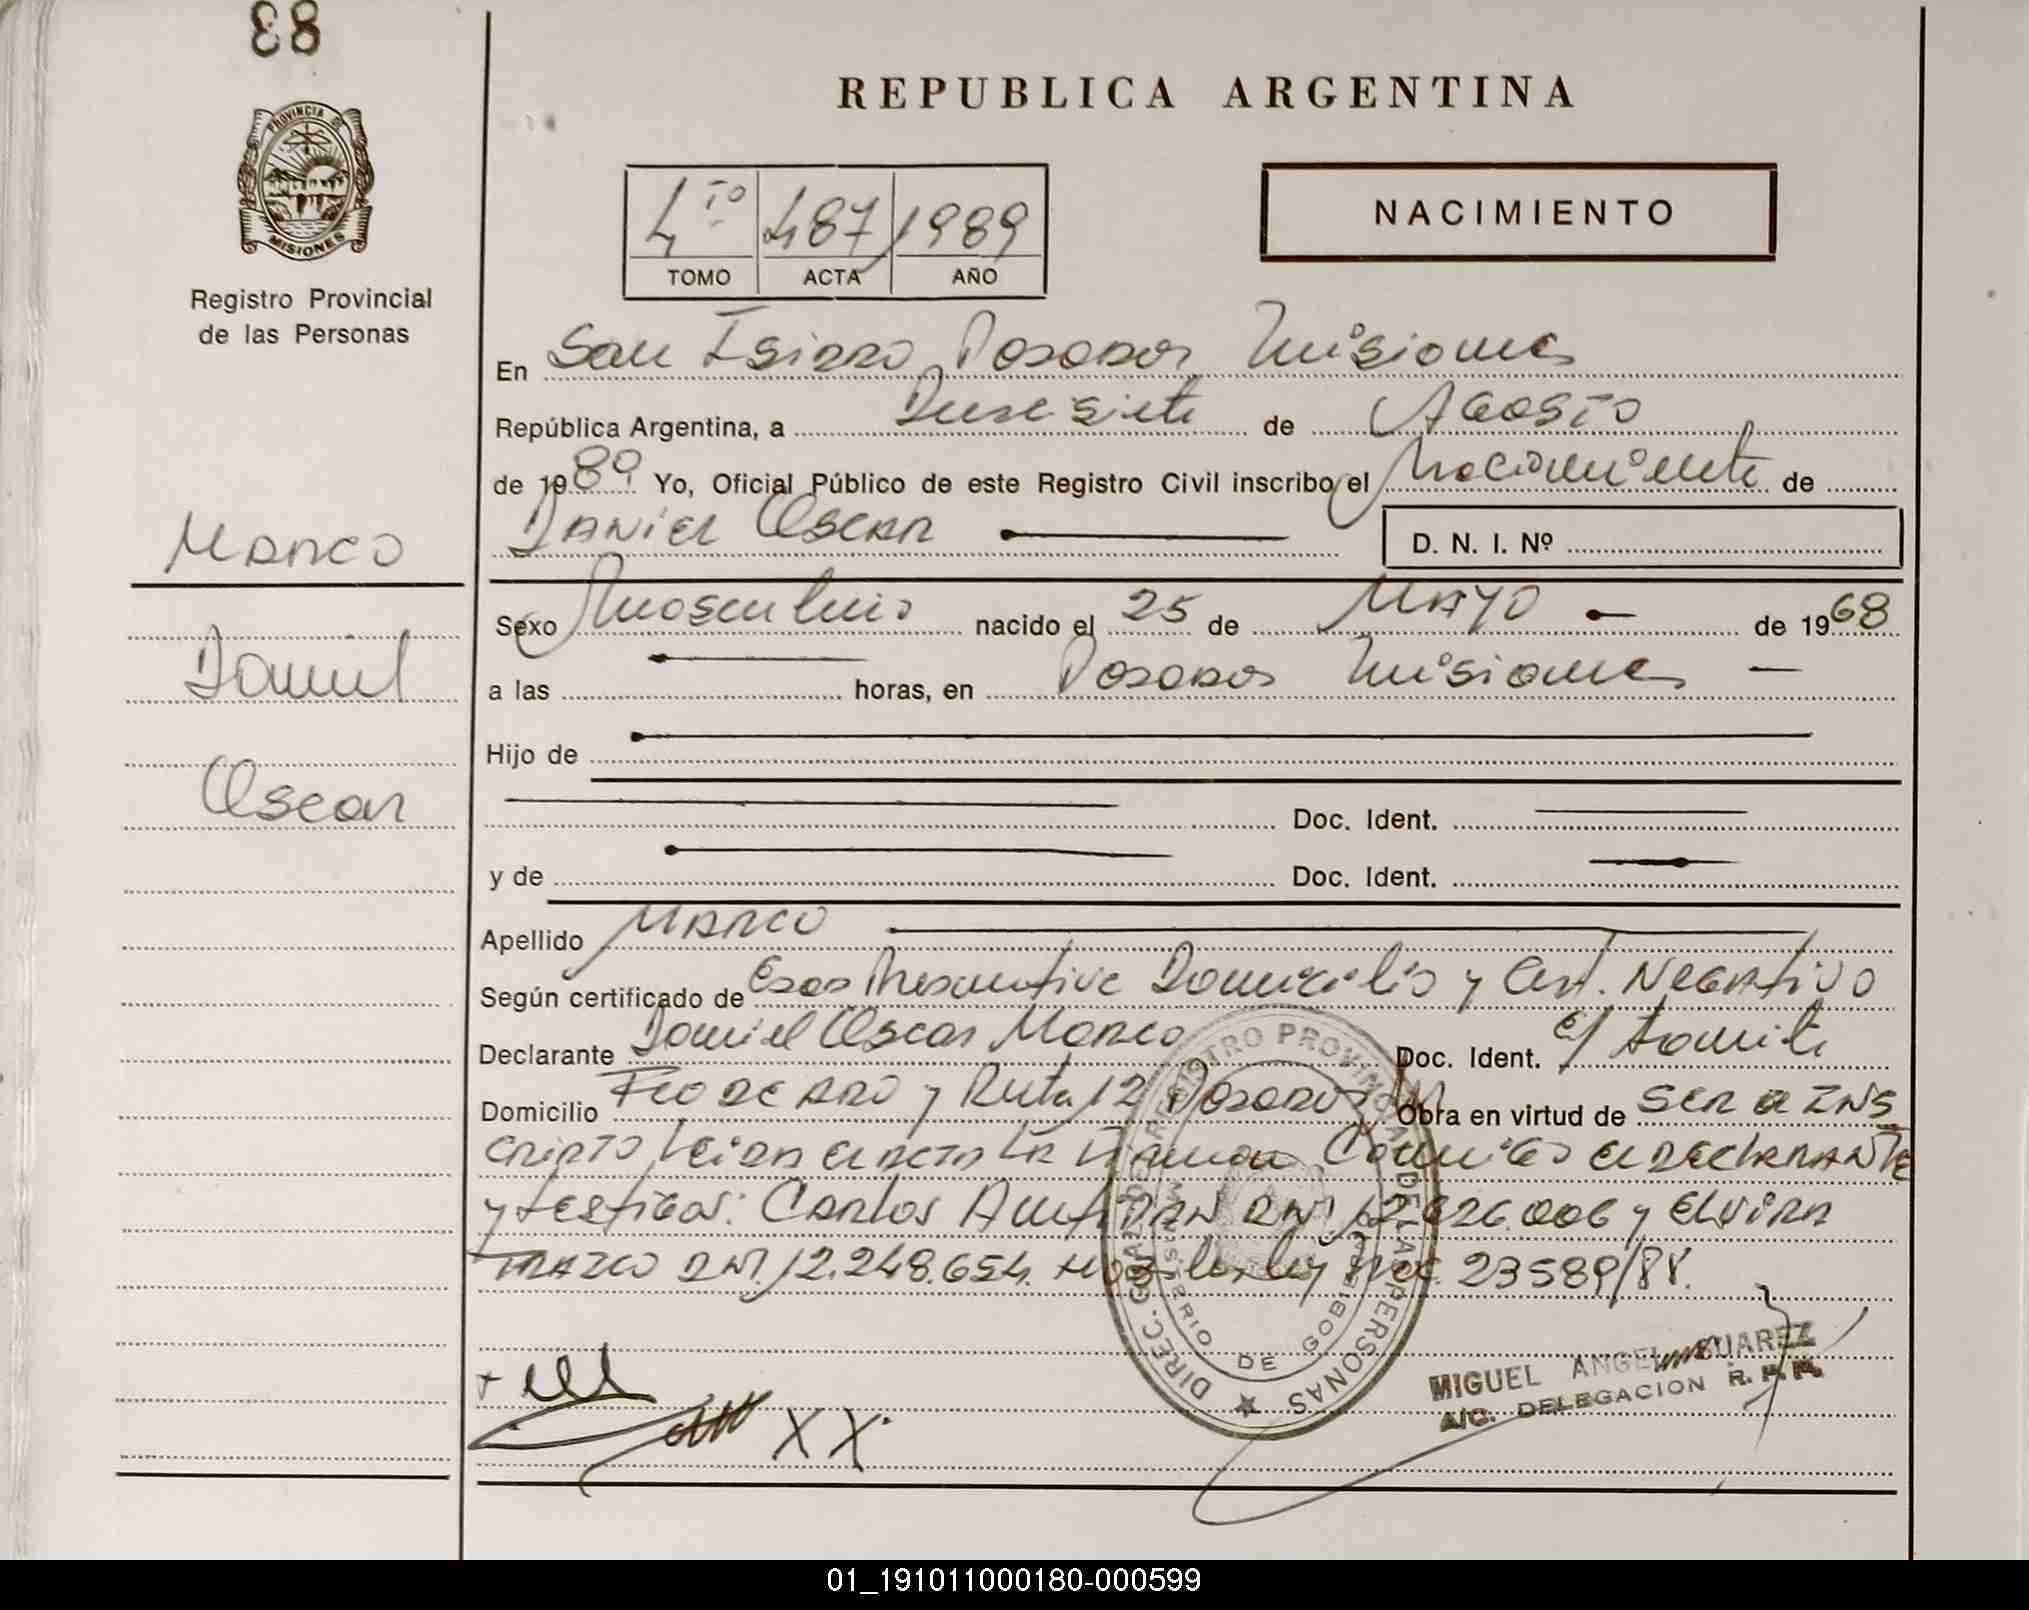 88
REPUBLICA ARGENTINA
PROVINCIA DE
MISIONES
Registro Provincial
de las Personas
4to 487 1989
TOMO ACTA AÑO
NACIMIENTO
En San Isidro Posadas Misiones
República Argentina, a Diecisiete de Agosto
de 1989 Yo, Oficial Público de este Registro Civil inscribo el Nacimiento de
Daniel Oscar D. N. I. Nº
Marco
Daniel
Oscar
Sexo Masculino nacido el 25 de Mayo de 1968
a las horas, en Posadas Misiones
Hijo de
Doc. Ident.
y de Doc. Ident.
Apellido Marco
Según certificado de Edad Presuntiva Domicilio y Cert. Negativo
Declarante Daniel Oscar Marco Doc. Ident. e/ tramite
Domicilio Fco de Aro y Ruta 12 Posadas Obra en virtud de ser a Ins
cripto Leida el acta la firman Conmigo el declarante
y testigos: Carlos DNI 12.826.006 y Elvira
DNI 12.248.654. ley Nac. 23589/88.
DIREC. GRAL. DEL REGISTRO PROVINCIAL DE LAS PERSONAS
MINISTERIO DE GOBIERNO
XX
MIGUEL ANGEL SUAREZ
A/C. DELEGACION R. P. P.
01_191011000180-000599